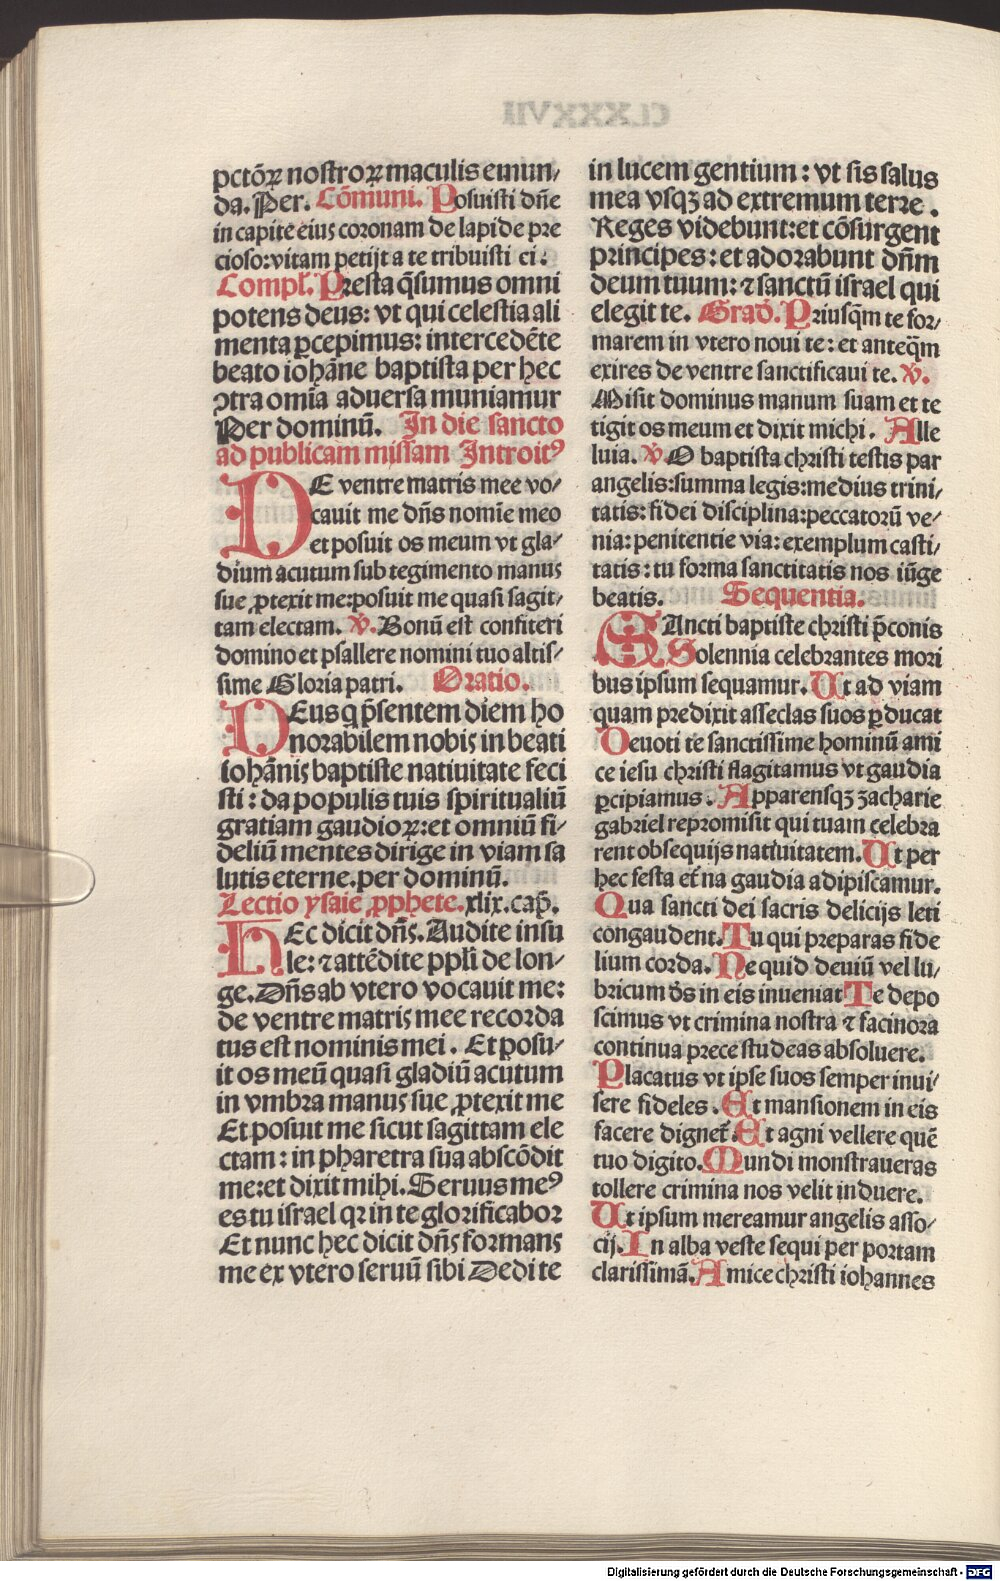 pctõꝝ nostroꝝ maculis emun/
da. Per. Cõmuni. Posuisti dñe
in capite eius coronam de lapide pre
cioso: vitam petijt a te tribuisti ei.
Compl̃. Presta q̃sumus omni
potens deus: vt qui celestia ali
menta ꝑcepimus: intercedẽte
beato iohãne baptista per hec
ↄtra omĩa aduersa muniamur
Per dominũ. In die sancto
ad publicam missam Introitꝰ
DE ventre matris mee vo/
cauit me dñs nomĩe meo
et posuit os meum vt gla/
dium acutum sub tegimento manus
sue ꝓtexit me: posuit me quasi sagit/
tam electam. ℣. Bonũ est confiteri
domino et psallere nomini tuo altis/
sime Gloria patri. Oratio.
DEus q p̃sentem diem ho
norabilem nobis in beati
iohãnis baptiste natiuitate feci
sti: da populis tuis spiritualiũ
gratiam gaudioꝝ: et omniũ fi/
deliũ mentes dirige in viam sa
lutis eterne. per dominũ.
Lectio ysaie ꝓphete. xlix. cap̃.
HEc dicit dñs. Audite insu
le: ⁊ attẽdite ppl̃i de lon/
ge. Dñs ab vtero vocauit me:
de ventre matris mee recorda
tus est nominis mei. Et posu/
it os meũ quasi gladiũ acutum
in vmbra manus sue ꝓtexit me
Et posuit me sicut sagittam ele
ctam: in pharetra sua abscõdit
me: et dixit mihi. Seruus meꝰ
es tu israel qꝛ in te glorificabor
Et nunc hec dicit dñs formans
me ex vtero seruũ sibi Dedi te
in lucem gentium: vt sis salus
mea vsqꝫ ad extremum terre.
Reges videbunt: et cõsurgent
principes: et adorabunt dñm
deum tuum: ⁊ sanctũ israel qui
elegit te. Grad̃. Priusq̃m te for/
marem in vtero noui te: et anteq̃m
exires de ventre sanctificaui te. ℣.
Misit dominus manum suam et te
tigit os meum et dixit michi. Alle
luia. ℣. O baptista christi testis par
angelis: summa legis: medius trini/
tatis: fidei disciplina: peccatorũ ve/
nia: penitentie via: exemplum casti/
tatis: tu forma sanctitatis nos iũge
beatis. Sequentia.
SAncti baptiste christi p̃conis
Solennia celebrantes mori
bus ipsum sequamur. Ut ad viam
quam predixit asseclas suos ꝑducat
Deuoti te sanctissime hominũ ami
ce iesu christi flagitamus vt gaudia
ꝑcipiamus. Apparensqꝫ zacharie
gabriel repromisit qui tuam celebra
rent obsequijs natiuitatem. Ut per
hec festa et̃na gaudia adipiscamur.
Qua sancti dei sacris delicijs leti
congaudent. Tu qui preparas fide
lium corda. Ne quid deuiũ vel lu/
bricum dr̃s in eis inueniat Te depo
scimus vt crimina nostra ⁊ facinora
continua prece studeas absoluere.
Placatus vt ipse suos semper inui/
sere fideles. Et mansionem in eis
facere dignet̃. Et agni vellere quẽ
tuo digito. Mundi monstraueras
tollere crimina nos velit induere.
Ut ipsum mereamur angelis asso/
cij. In alba veste sequi per portam
clarissimã. Amice christi iohannes
Digitalisierung gefördert durch die Deutsche Forschungsgemeinschaft - DFG